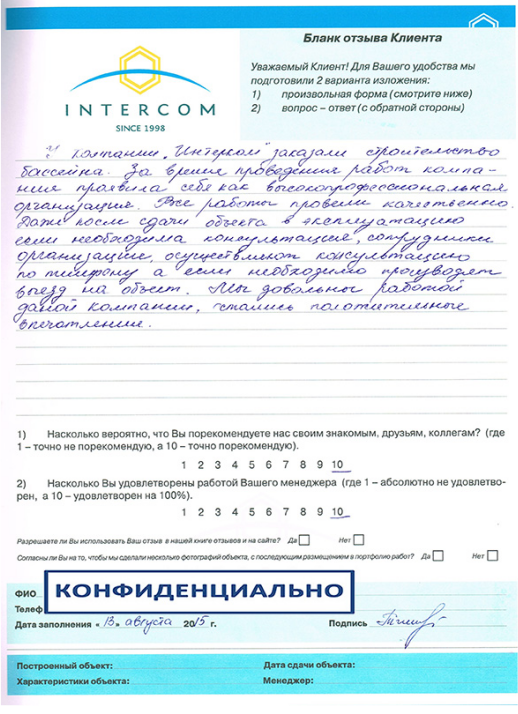 Бланк отзыва Клиента
INTERCOM
SINCE 1998
Уважаемый Клиент! Для Вашего удобства мы
подготовили 2 варианта изложения:
1) произвольная форма (смотрите ниже)
2) вопрос – ответ (с обратной стороны)
У компании „Интерком" заказали строительство
бассейна. За время проведения работ компа-
ния проявила себя как высокопрофессиональная
организация. Все работы провели качественно.
Даже после сдачи объекта в эксплуатацию
если необходима консультация, сотрудники
организации, осуществляют консультацию
по телефону а если необходимо производят
выезд на объект. Мы довольны работой
даной компании, остались положительные
впечатления.
1) Насколько вероятно, что Вы порекомендуете нас своим знакомым, друзьям, коллегам? (где
1 – точно не порекомендую, а 10 – точно порекомендую).
1 2 3 4 5 6 7 8 9 10
2) Насколько Вы удовлетворены работой Вашего менеджера (где 1 – абсолютно не удовлетво-
рен, а 10 – удовлетворен на 100%).
1 2 3 4 5 6 7 8 9 10
Разрешаете ли Вы использовать Ваш отзыв в нашей книге отзывов и на сайте? Да Нет
Согласны ли Вы на то, чтобы мы сделали несколько фотографий объекта, с последующим размещением в портфолио работ? Да Нет
КОНФИДЕНЦИАЛЬНО
ФИО
Телеф
Дата заполнения «13» августа 2015 г. Подпись
Построенный объект: Дата сдачи объекта:
Характеристики объекта: Менеджер: